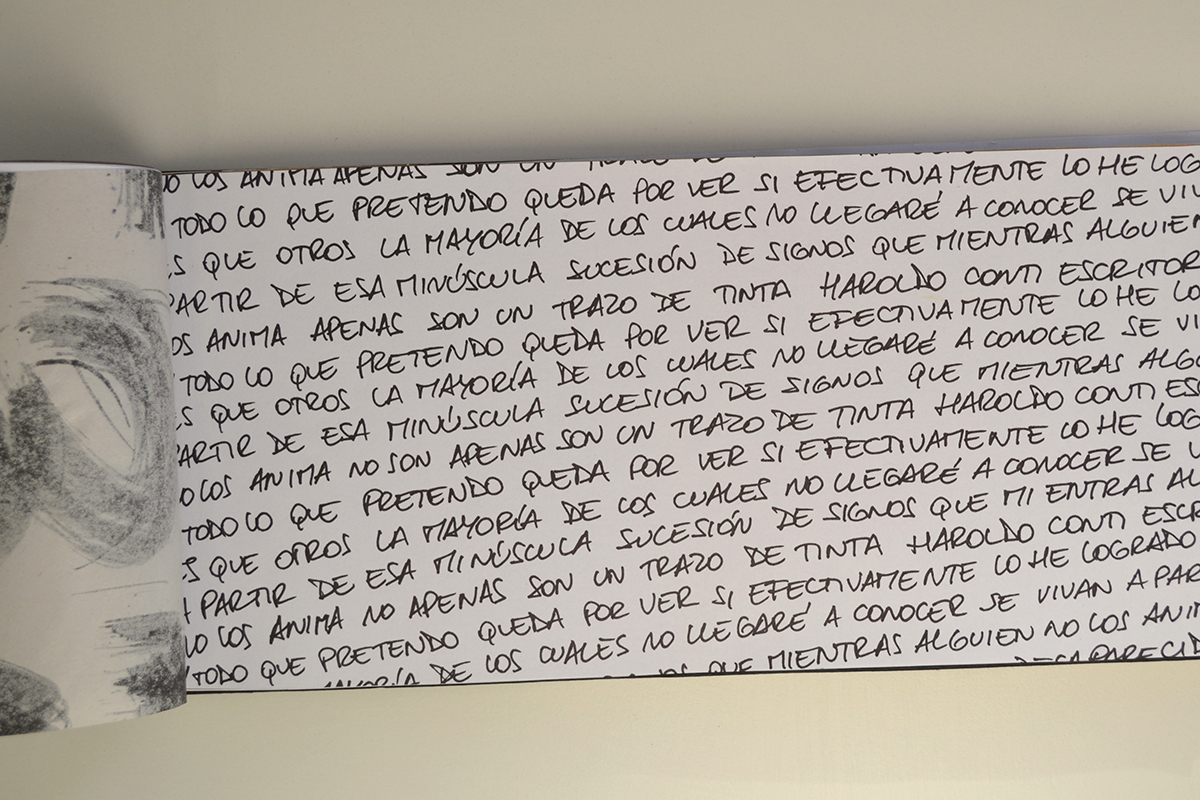 LOS ANIMA APENAS SON UN TRAZO DE
TODO LO QUE PRETENDO QUEDA POR VER SI EFECTIVAMENTE LO HE LOG
S QUE OTROS LA MAYORÍA DE LOS CUALES NO LLEGARÉ A CONOCER SE VI
PARTIR DE ESA MINÚSCULA SUCESIÓN DE SIGNOS QUE MIENTRAS ALGUIEN
OS ANIMA APENAS SON UN TRAZO DE TINTA HAROLDO CONTI ESCRITOR
TODO LO QUE PRETENDO QUEDA POR VER SI EFECTIVAMENTE LO HE LO
ES QUE OTROS LA MAYORÍA DE LOS CUALES NO LLEGARÉ A CONOCER SE VI
PARTIR DE ESA MINÚSCULA SUCESIÓN DE SIGNOS QUE MIENTRAS ALGU
O LOS ANIMA NO SON APENAS SON UN TRAZO DE TINTA HAROLDO CONTI ES
TODO LO QUE PRETENDO QUEDA POR VER SI EFECTIVAMENTE LO HE LOG
ES QUE OTROS LA MAYORÍA DE LOS CUALES NO LLEGARÉ A CONOCER SE V
A PARTIR DE ESA MINÚSCULA SUCESIÓN DE SIGNOS QUE MIENTRAS AL
NO LOS ANIMA NO APENAS SON UN TRAZO DE TINTA HAROLDO CONTI ESCR
TODO QUE PRETENDO QUEDA POR VER SI EFECTIVAMENTE LO HE LOGRADO
MAYORÍA DE LOS CUALES NO LLEGARÉ A CONOCER SE VIVAN A PAR
QUE MIENTRAS ALGUIEN NO LOS ANI
DESAPARECID